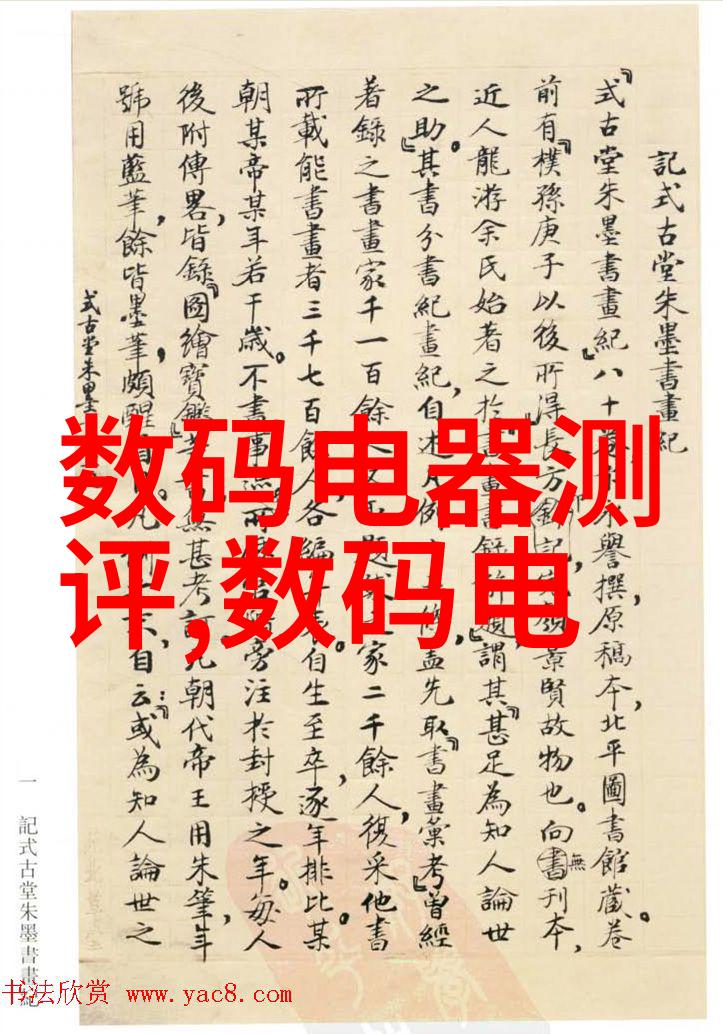 数码电器测
评,数码电
記式古堂朱墨書畫紀
『式古堂朱墨書畫紀』八十譽撰原稿本,北平圖書館藏。卷
前有『樸孫庚子以後所得』長方記景賢故物也。向無刊本,
近人龍游余氏始著之於書畫書錄題,謂其『甚足為知人論世
之助』。其書分書紀畫紀,自述凡例修,蓋先取『書畫彙考』曾經
著錄之書畫家千一百餘人題家二千餘人,復采他書
所載能書畫者三千七百餘人,各編年表。自生至卒,逐年排比某
朝某帝某年若干歲。不書事蹟,而旁注於封授之年。每人
後附傳畧,皆錄『圖繪寶鑑』等書無甚考訂凡朝代帝王用朱筆,年
號用藍筆,餘皆墨筆,頗醒目。凡例末,自云:『或為知人論世之
式古堂朱墨
一 記式古堂朱墨書畫紀
书法欣赏 www.yac8.com